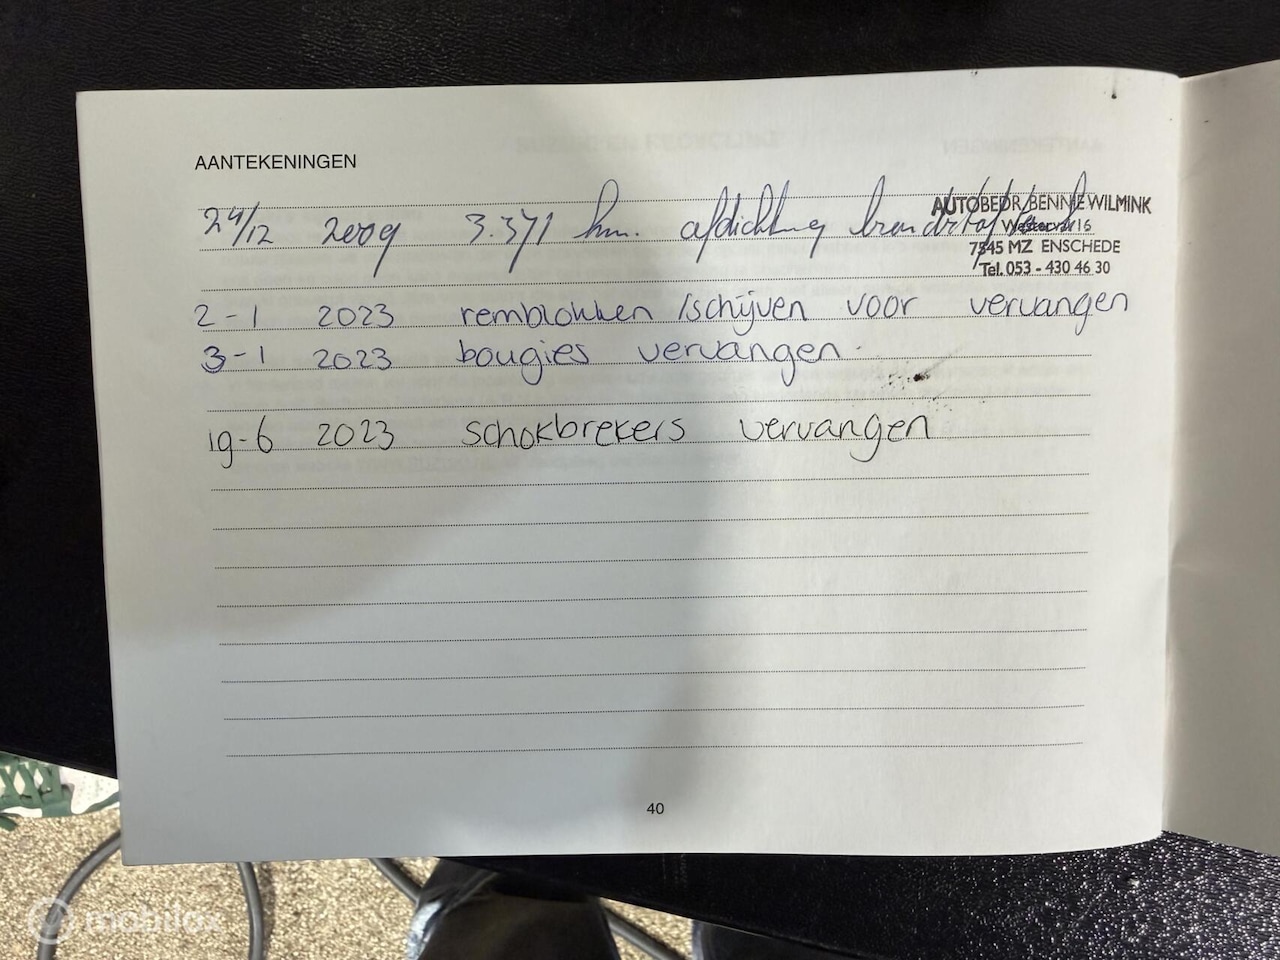 AANTEKENINGEN
24/12 2009 3.371 km. afdichting
AUTOBEDR. BENNIE WILMINK
Westerval 16
7545 MZ ENSCHEDE
Tel. 053 - 430 46 30
2-1 2023 remblokken /schijven voor vervangen
3-1 2023 bougies vervangen.
19-6 2023 schokbrekers vervangen
40
mobilox